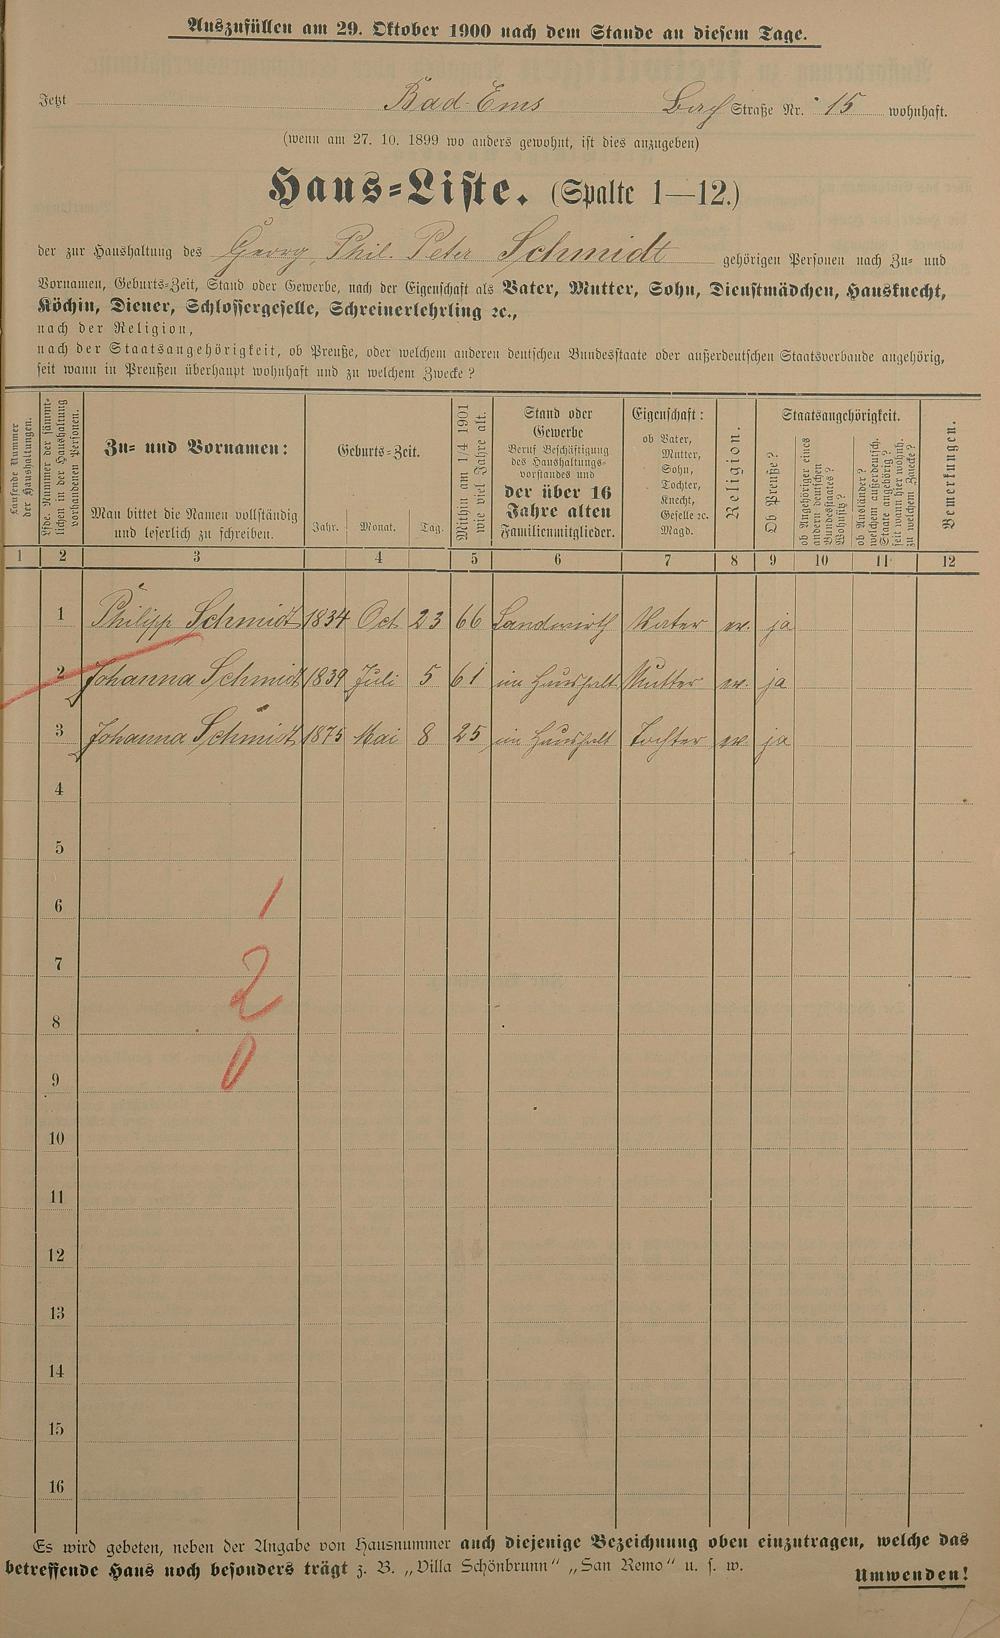 Auszufüllen am 29. Oktober 1900 nach dem Stande an diesem Tage.
Jetzt Bad-Ems Straße Nr. 15 wohnhaft.
(wenn am 27. 10. 1899 wo anders gewohnt, ist dies anzugeben)
Haus-Liste. (Spalte 1—12.)
der zur Haushaltung des Georg Phil. Peter Schmidt gehörigen Personen nach Zu- und
Vornamen, Geburts-Zeit, Stand oder Gewerbe, nach der Eigenschaft als Vater, Mutter, Sohn, Dienstmädchen, Hausknecht,
Köchin, Diener, Schlossergeselle, Schreinerlehrling ꝛc.,
nach der Religion,
nach der Staatsangehörigkeit, ob Preuße, oder welchem anderen deutschen Bundesstaate oder außerdeutschen Staatsverbande angehörig,
seit wann in Preußen überhaupt wohnhaft und zu welchem Zwecke?
Laufende Nummer
der Haushaltungen.
Lfde. Nummer der sämmt-
lichen in der Haushaltung
vorhandenen Personen.
Zu- und Vornamen:
Man bittet die Namen vollständig
und leserlich zu schreiben.
Geburts-Zeit.
Jahr. Monat. Tag.
Mithin am 1/4 1901
wie viel Jahre alt.
Stand oder
Gewerbe
Beruf Beschäftigung
des Haushaltungs-
vorstandes und
der über 16
Jahre alten
Familienmitglieder.
Eigenschaft:
ob Vater,
Mutter,
Sohn,
Tochter,
Knecht,
Geselle ꝛc.
Magd.
Religion.
Staatsangehörigkeit.
Ob Preuße?
ob Angehöriger eines
andern deutschen
Bundesstaates?
Wohnsitz?
ob Ausländer?
welchem außerdeutsch.
Staate angehörig?
seit wann hier wohnh.
zu welchem Zwecke?
Bemerkungen.
1 2 3 4 5 6 7 8 9 10 11 12
1 Philipp Schmidt 1834 Oct 23 66 Landwirth Vater ev. ja
2 Johanna Schmidt 1839 Juli 5 61 im Haushalt Mutter ev. ja
3 Johanna Schmidt 1875 Mai 8 25 im Haushalt Tochter ev. ja
4
5
6 1
7
2
8
9 0
10
11
12
13
14
15
16
Es wird gebeten, neben der Angabe von Hausnummer auch diejenige Bezeichnung oben einzutragen, welche das
betreffende Haus noch besonders trägt z. B. „Villa Schönbrunn“ „San Remo“ u. s. w.
Umwenden!